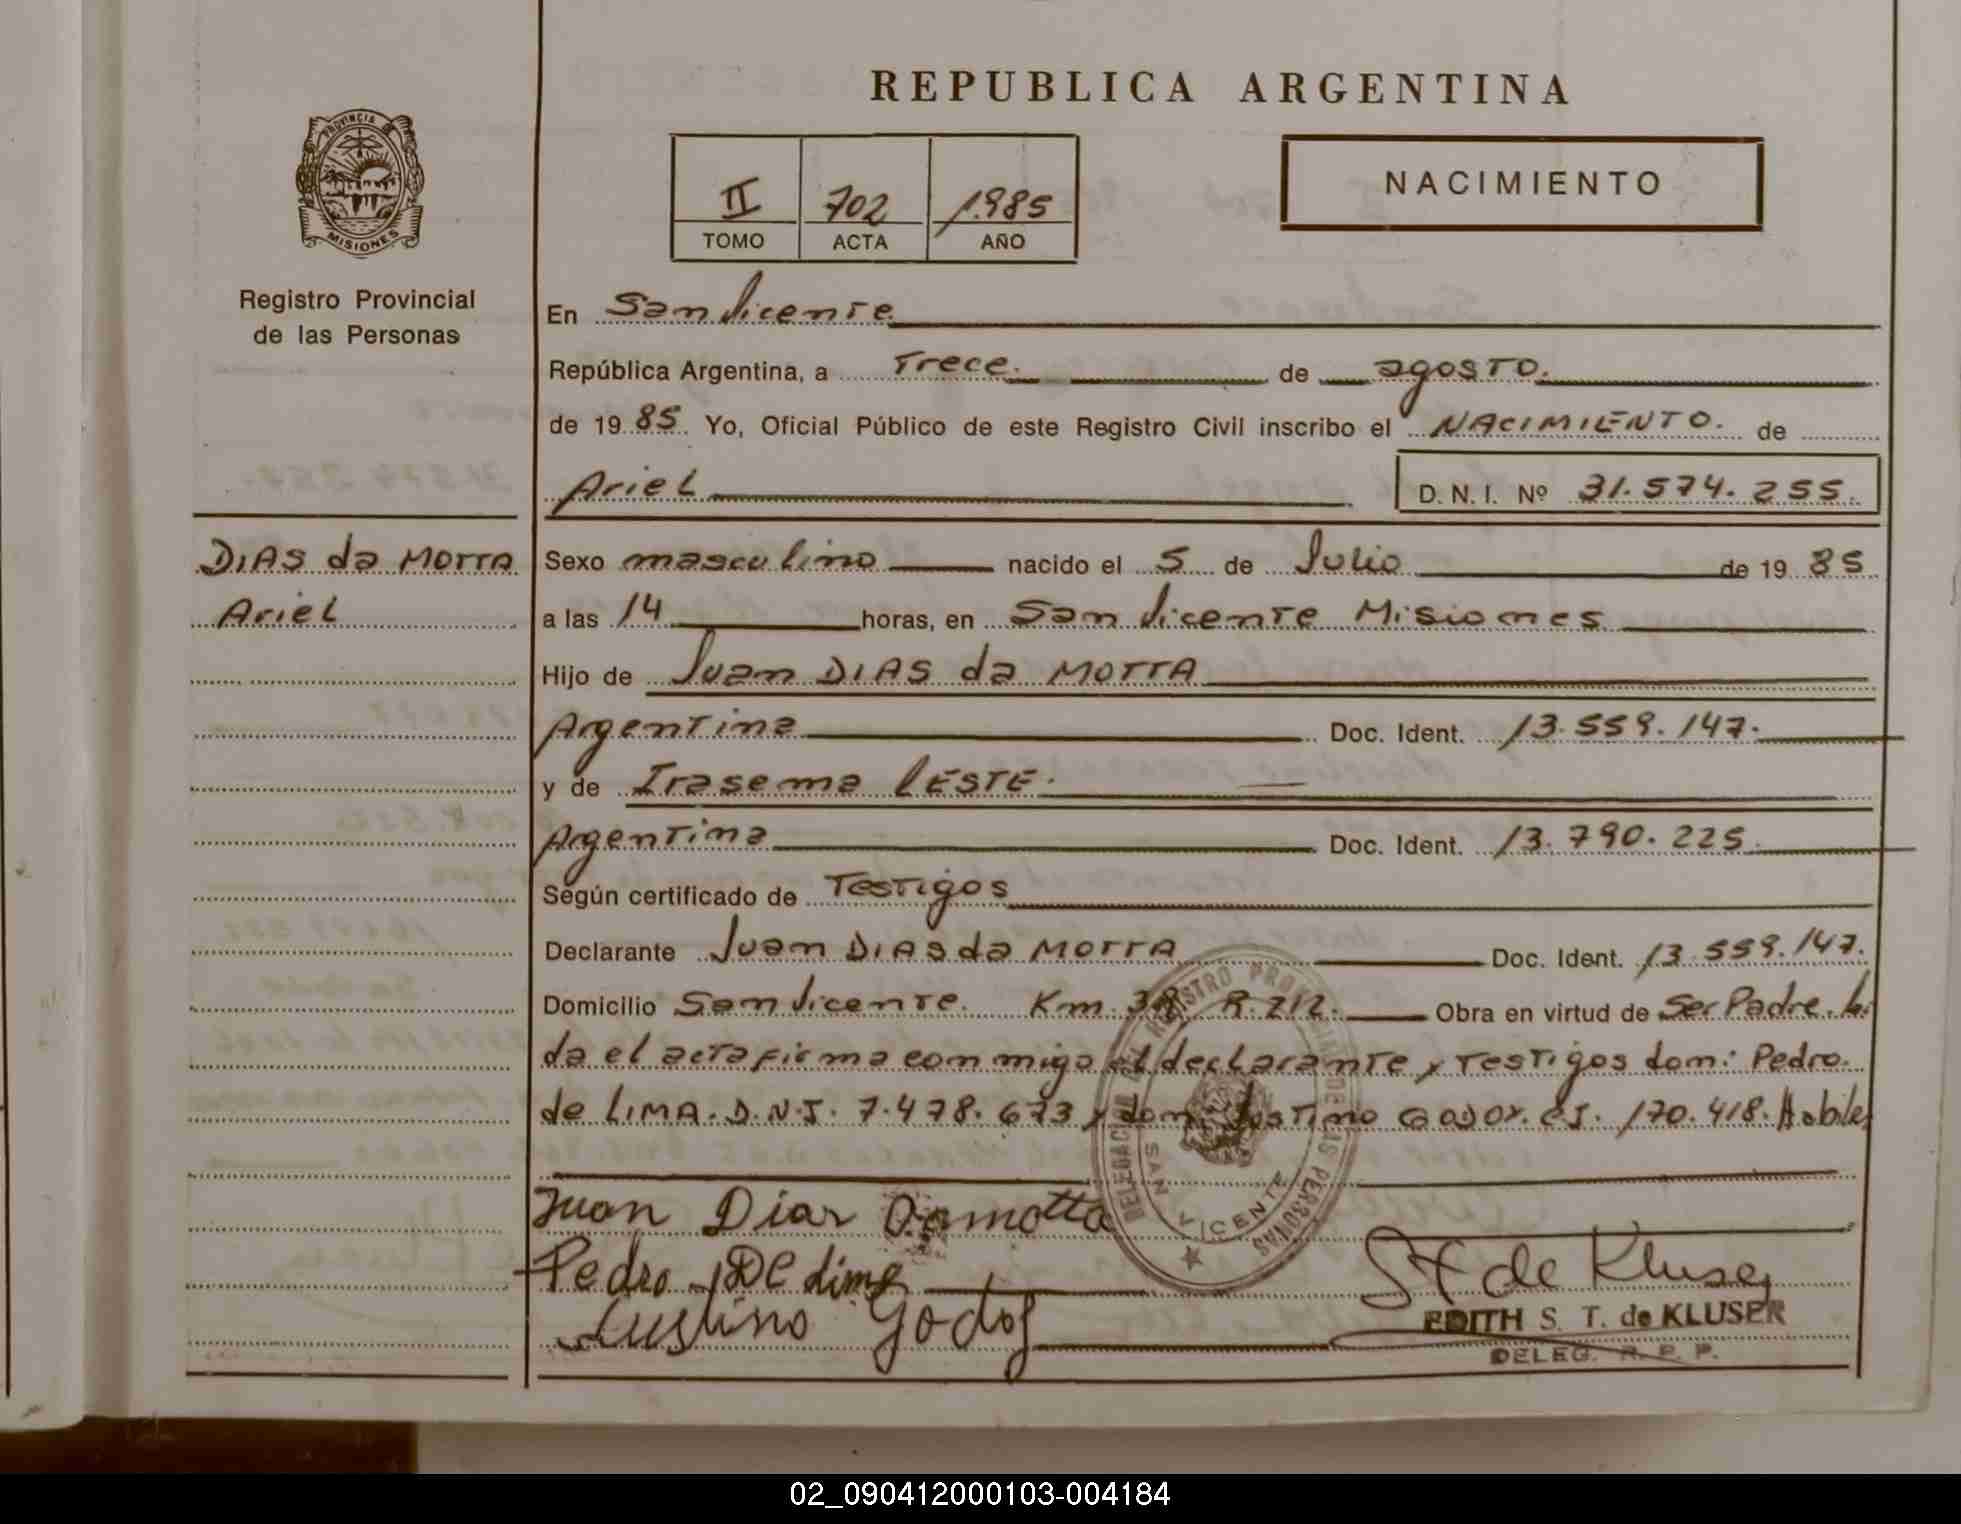 REPUBLICA ARGENTINA
PROVINCIA DE
MISIONES
Registro Provincial
de las Personas
II 702 1985
TOMO ACTA AÑO
NACIMIENTO
En San Vicente
República Argentina, a Trece. de agosto.
de 19 85 Yo, Oficial Público de este Registro Civil inscribo el NACIMIENTO. de
Ariel D. N. I. Nº 31.574.255.
DIAS da MOTTA
Ariel
Sexo masculino nacido el 5 de Julio de 19 85
a las 14 horas, en San Vicente Misiones
Hijo de Juan DIAS da MOTTA
Argentina Doc. Ident. 13.559.147.
y de Irasema LESTE.
Argentina Doc. Ident. 13.790.225
Según certificado de Testigos
Declarante Juan DIAS da MOTTA Doc. Ident. 13.559.147.
Domicilio San Vicente. Km. 38 R. 212. Obra en virtud de Ser Padre. Lei
da el acta firma conmigo el declarante y Testigos dom: Pedro.
de LIMA. D.N.I. 7.478.673 y dom Justino GODOY. CI. 170.418. Habiles
DELEGACION DEL REGISTRO PROVINCIAL DE LAS PERSONAS
SAN VICENTE
Juan Diar Damotta
Pedro De Lima
Justino Godoy
St de Kluser
EDITH S. T. de KLUSER
DELEG. R. P. P.
02_090412000103-004184